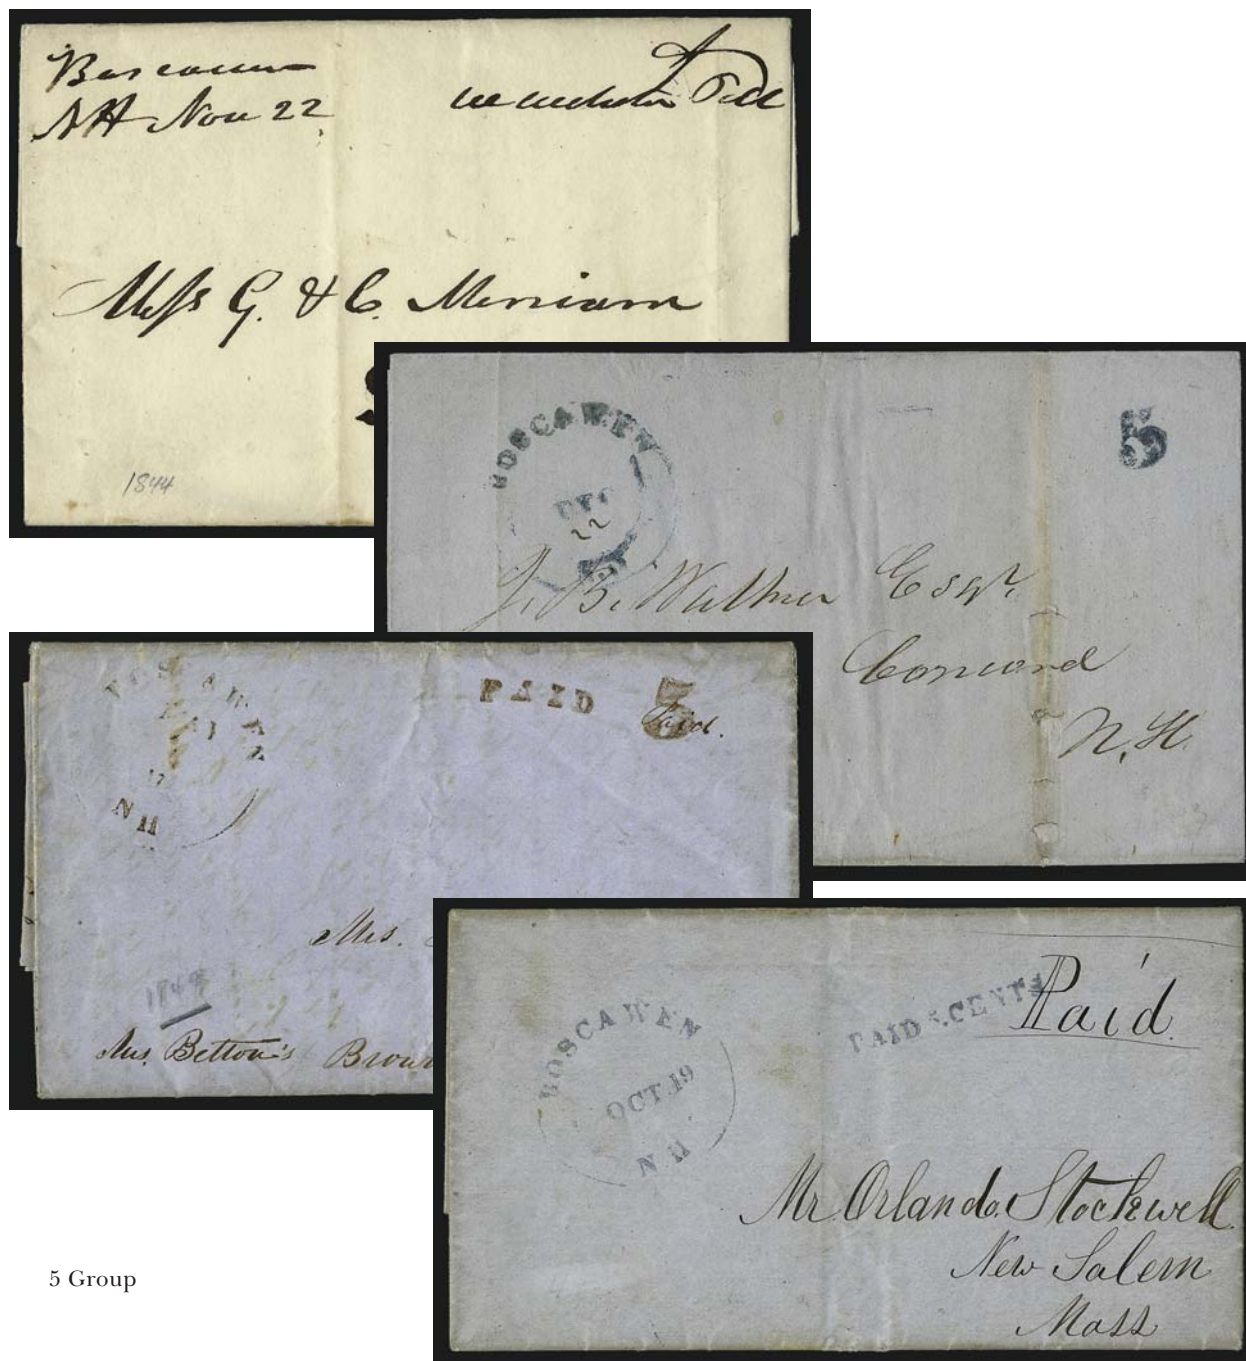 Boscawen
NH Nov 22
Mess G. & C. Merriam
1844
BOSCAWEN
DEC
22
5
J. B. Walker Esqr.
Concord
N. H.
PAID 5
Paid.
NH
Mrs.
1849
Mrs. Betton's Brown
BOSCAWEN
OCT. 19
N H
PAID 5 CENTS
Paid
Mr Orlando Stockwell
New Salem
Mass
5 Group